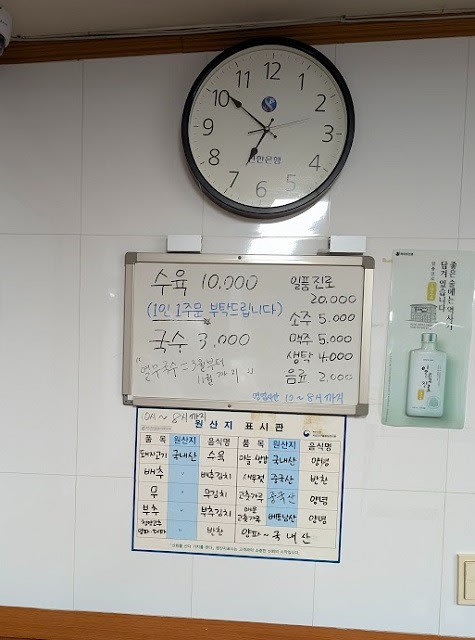 12
1
2
3
4
5
6
7
8
9
10
11
신한은행
수육 10,000
(1인 1주문 부탁드립니다)
국수 3,000
일품진로
20,000
소주 5.000
맥주 5,000
생탁 4,000
음료 2,000
영업시간 10~8시까지
좋은 술에는 역사가
담겨 있습니다
10시~8시까지
원산지 표시판
품목 원산지 음식명 품목 원산지 음식명
돼지고기 국내산 수육 마늘 생강 국내산 양념
배추 〃 배추김치 새우젓 중국산 반찬
무 〃 무김치 고춧가루 중국산 양념
부추 〃 부추김치 매운고춧가루 베트남산 양념
〃 반찬 양파~국내산